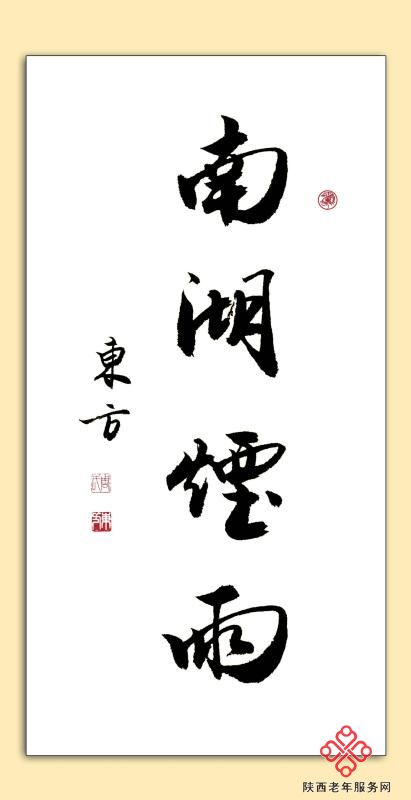 南湖煙雨
東方
陕西老年服务网